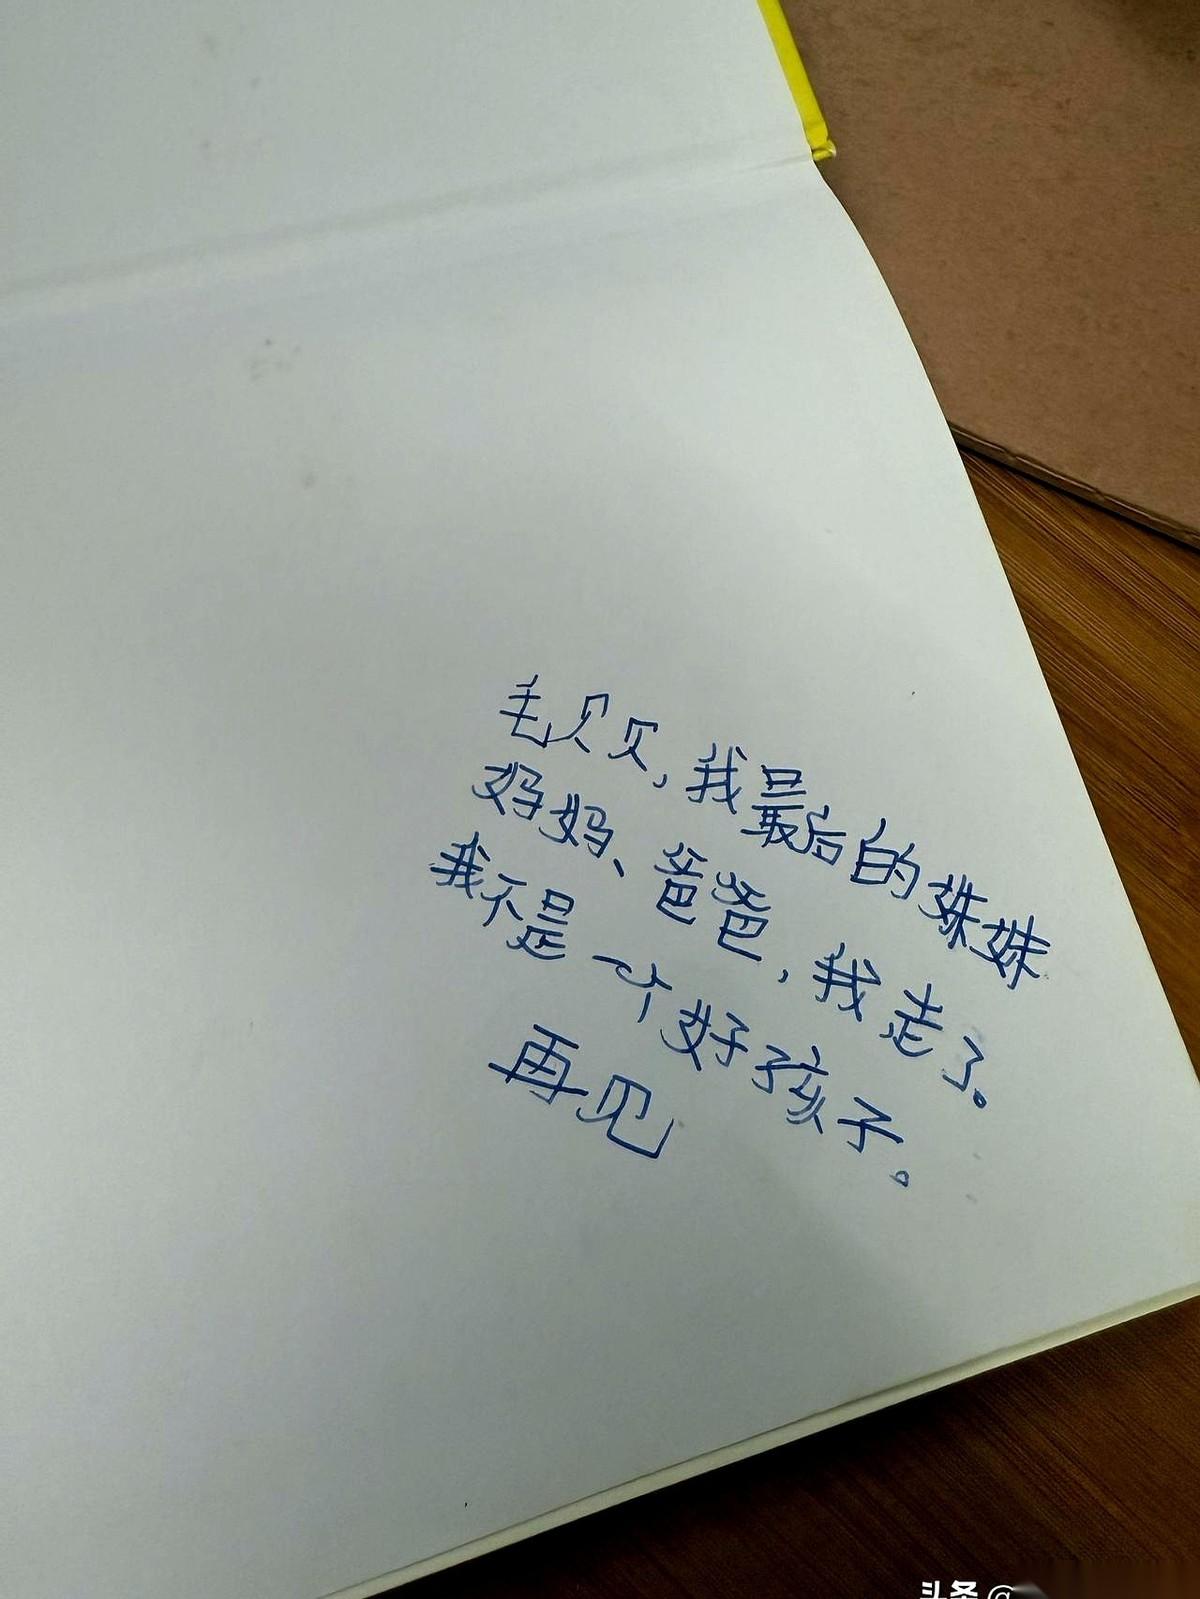 毛贝贝，我最后的妹妹
妈妈、爸爸，我走了。
我不是一个好孩子。
再见
头条 @